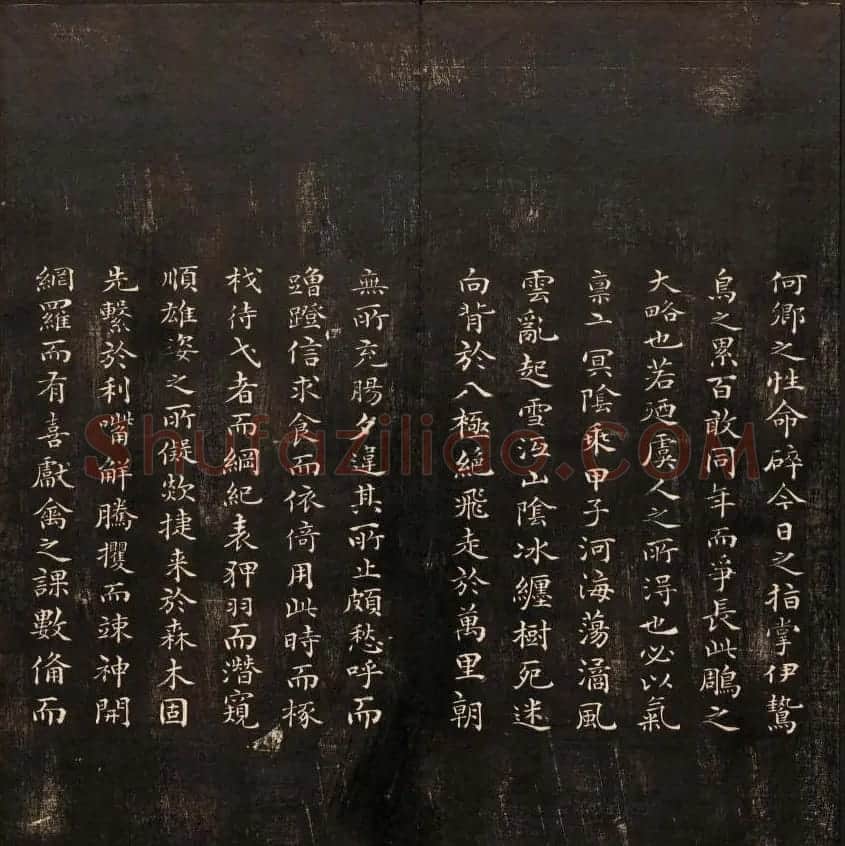 何鄉之性命碎今日之指掌伊鷙
鳥之累百敢同年而爭長此鵰之
大略也若廼虞人之所得也必以氣
稟玄冥陰乘甲子河海蕩潏風
雲亂起雪沍山陰冰纏樹死迷
向背於八極絕飛走於萬里朝
無所充腸夕違其所止頗愁呼而
蹭蹬信求食而依倚用此時而椓
杙待弋者而綱紀表狎羽而潛窺
順雄姿之所儗欻捷来於森木固
先繫於利嘴解騰攫而竦神開
網羅而有喜獻禽之課數俻而
Shufaziliao.COM